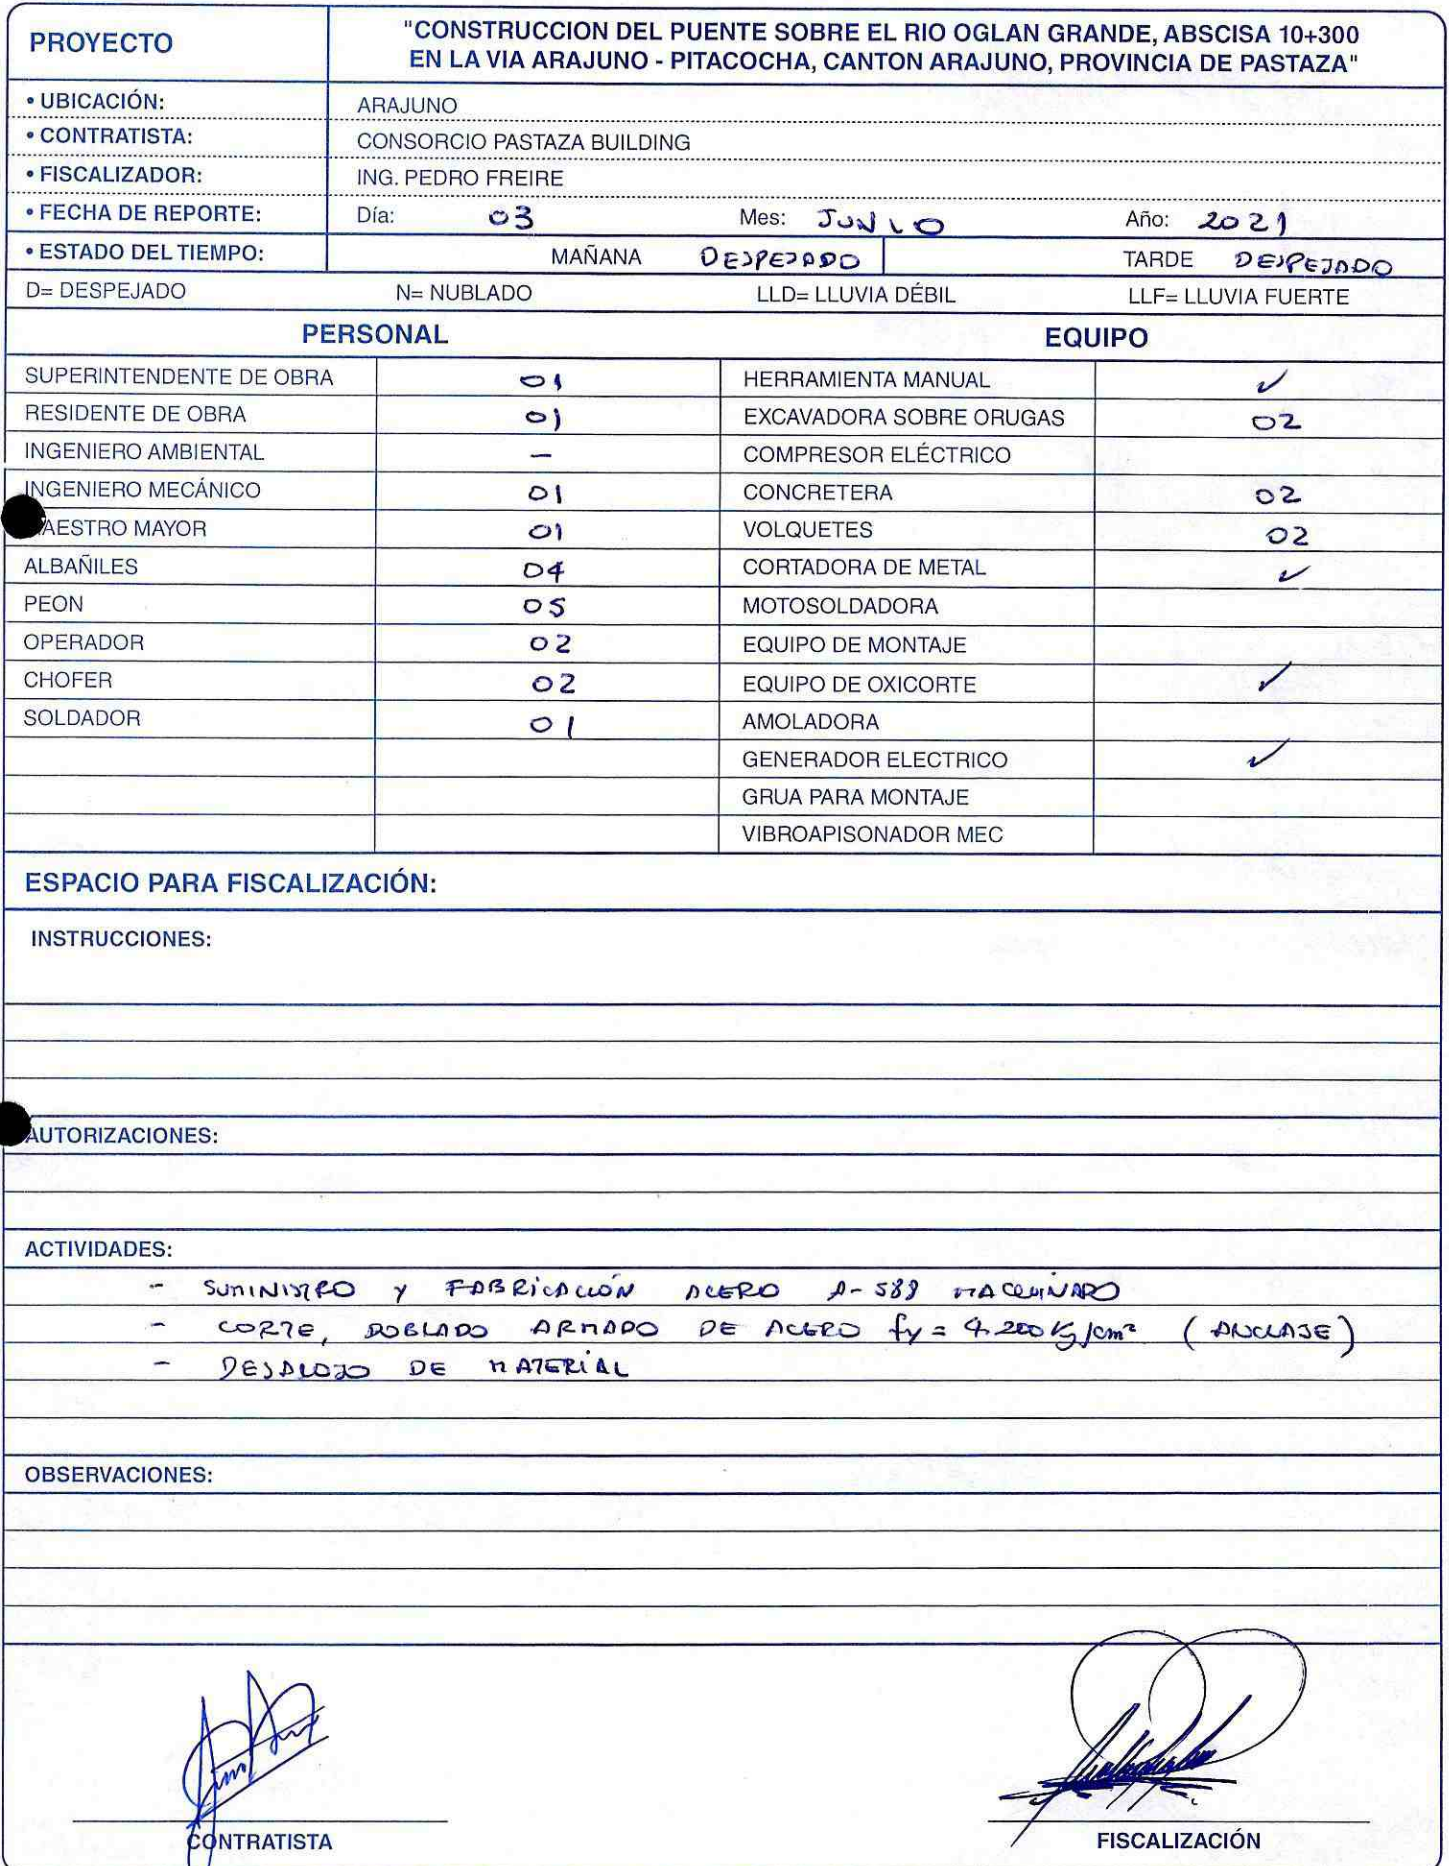 PROYECTO
"CONSTRUCCION DEL PUENTE SOBRE EL RIO OGLAN GRANDE, ABSCISA 10+300
EN LA VIA ARAJUNO - PITACOCHA, CANTON ARAJUNO, PROVINCIA DE PASTAZA"
• UBICACIÓN: ARAJUNO
• CONTRATISTA: CONSORCIO PASTAZA BUILDING
• FISCALIZADOR: ING. PEDRO FREIRE
• FECHA DE REPORTE: Día: 03 Mes: JUNIO Año: 2021
• ESTADO DEL TIEMPO: MAÑANA DESPEJADO TARDE DESPEJADO
D= DESPEJADO N= NUBLADO LLD= LLUVIA DÉBIL LLF= LLUVIA FUERTE
PERSONAL EQUIPO
SUPERINTENDENTE DE OBRA 01 HERRAMIENTA MANUAL ✓
RESIDENTE DE OBRA 01 EXCAVADORA SOBRE ORUGAS 02
INGENIERO AMBIENTAL – COMPRESOR ELÉCTRICO
INGENIERO MECÁNICO 01 CONCRETERA 02
MAESTRO MAYOR 01 VOLQUETES 02
ALBAÑILES 04 CORTADORA DE METAL ✓
PEON 05 MOTOSOLDADORA
OPERADOR 02 EQUIPO DE MONTAJE
CHOFER 02 EQUIPO DE OXICORTE ✓
SOLDADOR 01 AMOLADORA
GENERADOR ELECTRICO ✓
GRUA PARA MONTAJE
VIBROAPISONADOR MEC
ESPACIO PARA FISCALIZACIÓN:
INSTRUCCIONES:
AUTORIZACIONES:
ACTIVIDADES:
- SUMINISTRO Y FABRICACIÓN ACERO A-588 MAQUINADO
- CORTE, DOBLADO ARMADO DE ACERO fy = 4.200 Kg/cm² (ANCLAJE)
- DESALOJO DE MATERIAL
OBSERVACIONES:
CONTRATISTA FISCALIZACIÓN